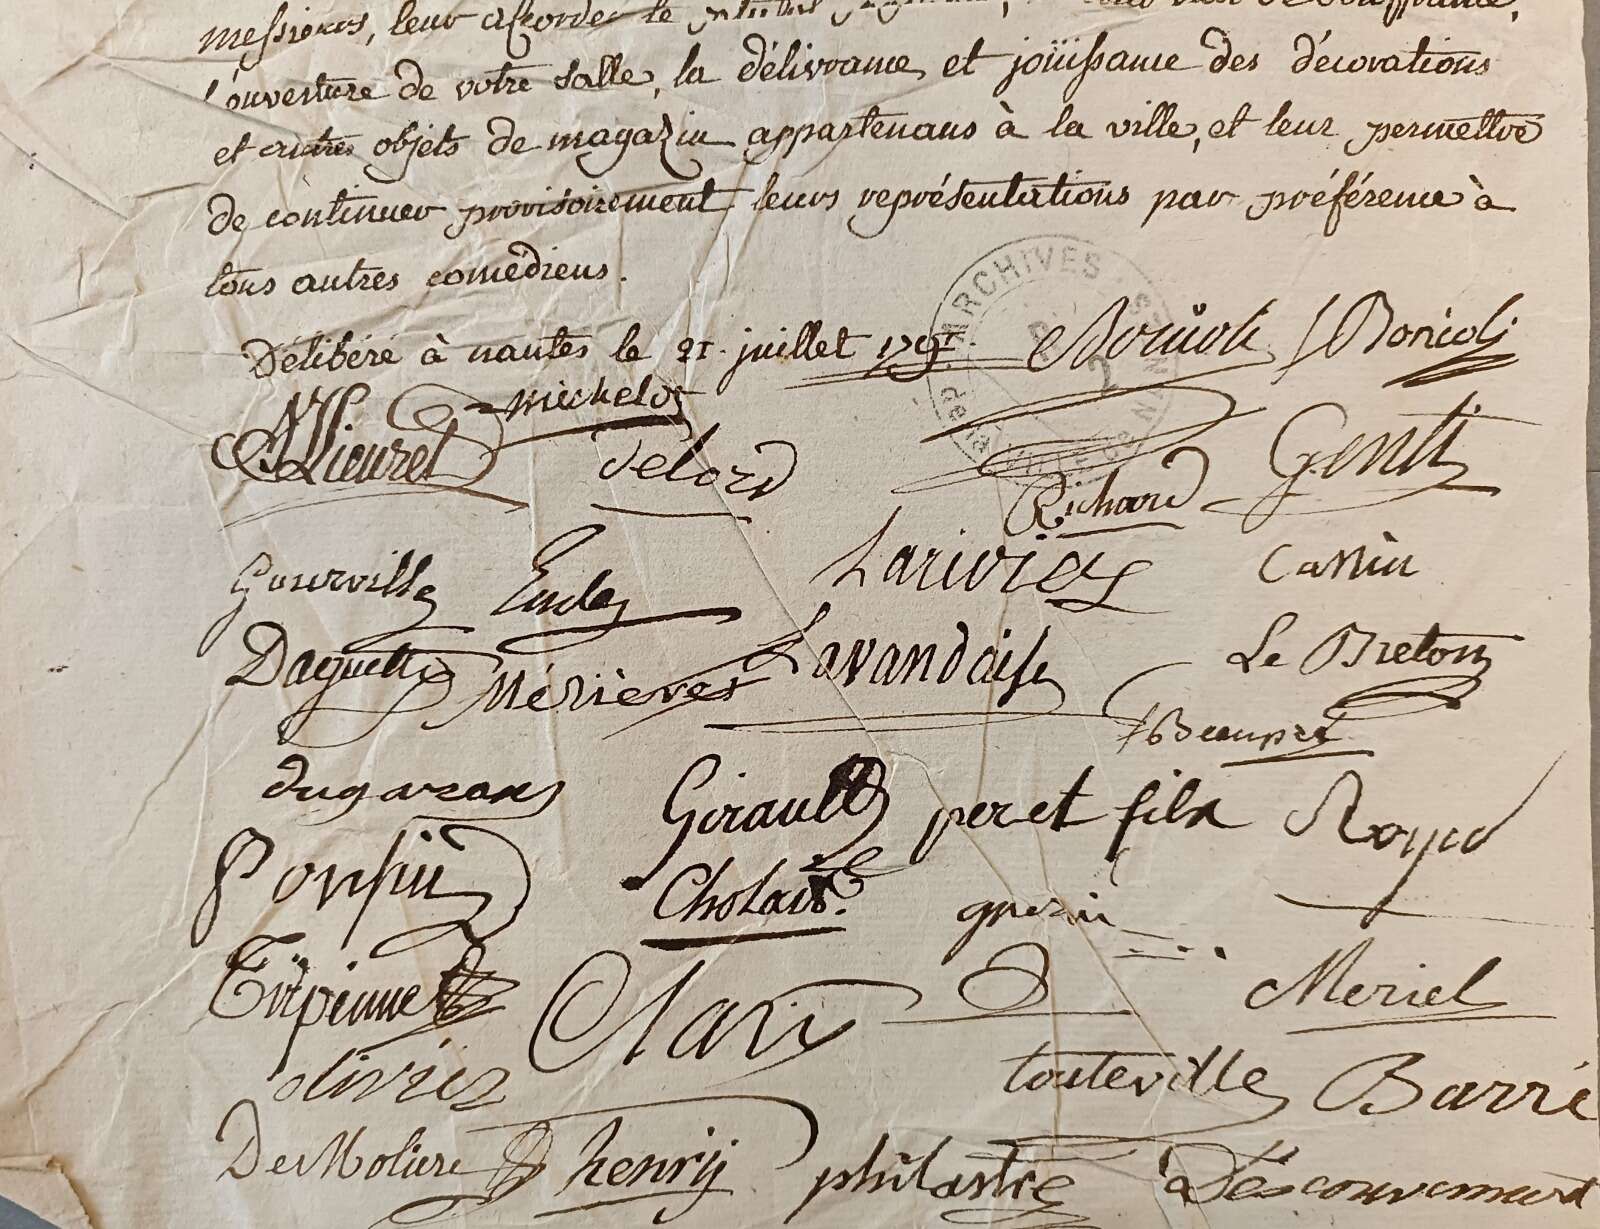 messieurs, leur accorder le
l'ouverture de votre salle, la délivrance, et joüissance des décorations
et autres objets de magazin appartenans à la ville, et leur permettre
de continuer provisoirement leurs représentations par préférence à
tous autres comédiens.
Délibéré à nantes le 21. juillet 1791 Bonioli
michelot
Lieuret Delord Richard Genti
gourville Eude Larivier Cassin
Daguetti Mérieres Lavandaise Le Breton
Beaupré
dugarzan Girault per et fils
Ponsin Cholait guerin
Clari Meriel
olivier touteville Barré
De Moliere henrij philastre Descouvemant
ARCHIVES
2